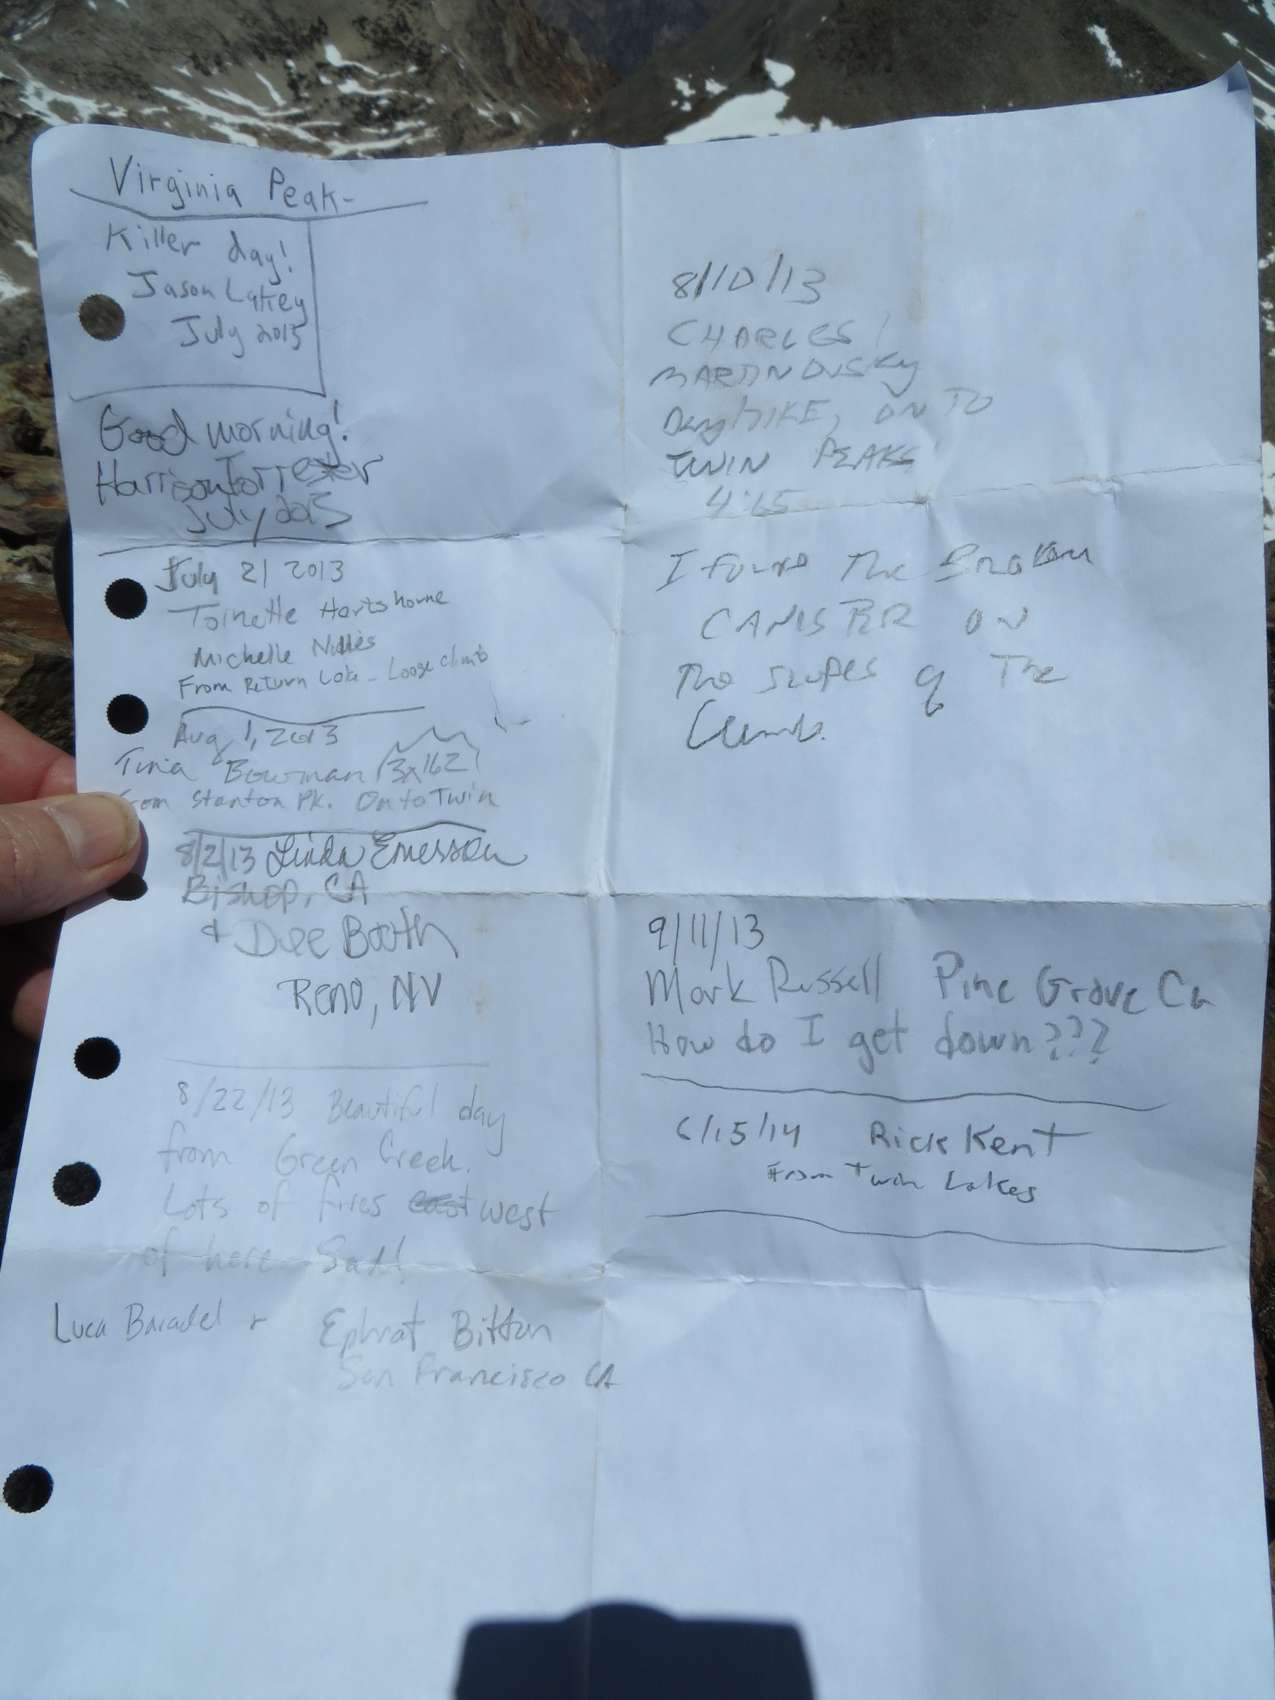 Virginia Peak-
Killer day!
Jason Lakey
July 2015
Good morning!
Harrison Forrester
July 2015
July 21 2013
Toinette Hartshorne
Michelle
From Return Lake - Loose climb
Aug 1, 2013
Tina Bowman (3x162)
from Stanton Pk. On to Twin
8/2/13 Linda Emerson
Bishop, CA
+ Dee Booth
Reno, NV
8/22/13 Beautiful day
from Green Creek.
Lots of fires east west
of here. Sad!
Luca Baradel + Ephrat Bitton
San Francisco CA
8/10/13
CHARLES
MARTINOVSKY
DayHIKE, ON TO
TWIN PEAKS
I found The Broken
CANISTER ON
The slopes of The
Climb.
9/11/13
Mark Russell Pine Grove Ca
How do I get down???
6/15/14 Rick Kent
From Twin Lakes